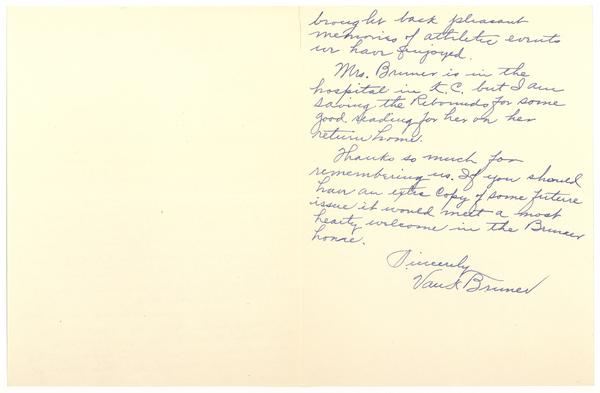 brought back pleasant
memories of athletic events
we have enjoyed.
Mrs. Bruner is in the
hospital in K.C. but I am
saving the Rebounds for some
good reading for her on her
return home.
Thanks so much for
remembering us. If you should
have an extra copy of some future
issue it would meet a most
hearty welcome in the Bruner
home.
Sincerely
Bruner